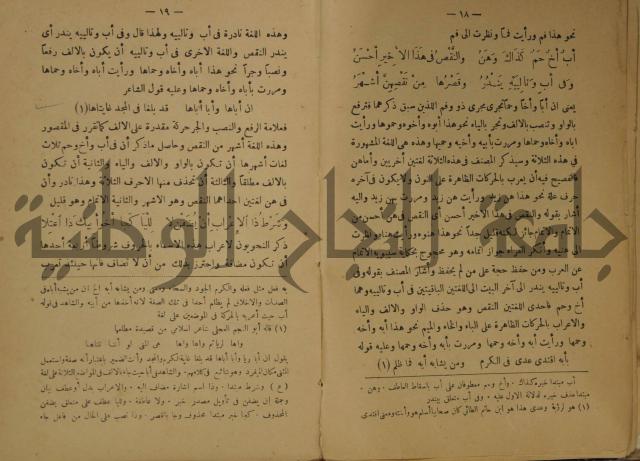 — ١٨ —
نحو هذا فم ورأيت فما ونظرت الى فم
أب أخ حم كذاك وهن والنقص فى هذا الأخير أحسن
وفى أب وتالييه يندر وقصرها من نقصهن أشهر
يعنى ان أبا وأخا وحما تجرى مجرى ذو وفم اللذين سبق ذكرهما فترفع
بالواو وتنصب بالالف وتجر بالياء نحو هذا أبوه وأخوه وحموها ورأيت
اباه وأخاه وحماها ومررت بأبيه وأخيه وحميها وهذه هى اللغة المشهورة
فى هذه الثلاثة وسيذكر المصنف فى هذه الثلاثة لغتين أخريين وأما هن
فالفصيح فيه أن يعرب بالحركات الظاهرة على النون ولا يكون فى آخره
حرف علة نحو هذا هن زيد ورأيت هن زيد ومررت بهن زيد واليه
أشار بقوله والنقص فى هذا الأخير أحسن أى النقص فى هن أحسن من
الاتمام والاتمام جائز لكنه قليل جدا نحو هذا هنوه ورأيت هناه ونظرت
الى هنيه وأنكر الفراء جواز اتمامه وهو محجوج بحكاية سيبويه الاتمام
عن العرب ومن حفظ حجة على من لم يحفظ وأشار المصنف بقوله وفى
أب وتالييه يندر الى آخر البيت الى اللغتين الباقيتين فى أب وتالييه وهما
أخ وحم فاحدى اللغتين النقص وهو حذف الواو والالف والياء
والاعراب بالحركات الظاهرة على الباء والخاء والميم نحو هذا أبه وأخه
وحمها ورأيت أبه وأخه وحمها ومررت بأبه وأخه وحمها وعليه قوله
بأبه اقتدى عدى فى الكرم ومن يشابه أبه فما ظلم (١)
أب مبتدا خبره كذاك - وأخ وحم معطوفان على أب باسقاط العاطف - وهن -
مبتدا حذف خبره لدلالة الاول عليه - وفى أب متعلق بيندر
(١) هو لرؤبة وعدى هذا هو ابن حاتم الطائى كان صحابيا
— ١٩ —
وهذه اللغة نادرة فى أب وتالييه ولهذا قال وفى أب وتالييه أى
يندر النقص واللغة الاخرى فى أب وتالييه أن يكون بالالف رفعا
ونصبا وجرا نحو هذا أباه وأخاه وحماها ورأيت أباه وأخاه وحماها
ومررت بأباه وأخاه وحماها وعليه قول الشاعر
ان أباها وأبا أباها قد بلغا فى المجد غايتاها (١)
فعلامة الرفع والنصب والجر حركة مقدرة على الالف كما تقرر فى المقصور
وهذه اللغة أشهر من النقص وحاصل ما ذكر أن فى أب وأخ وحم ثلاث
لغات أشهرها أن تكون بالواو والالف والياء والثانية أن تكون
بالالف مطلقا والثالثة أن تحذف منها الاحرف الثلاثة وهذا نادر وأن
فى هن لغتين احداهما النقص وهو الاشهر والثانية الاتمام وهو قليل
وشرط ذا الاعراب أن يضفن لا لليا كجا أخو أبيك ذا اعتلا
ذكر النحويون لاعراب هذه الاسماء بالحروف شروطا أربعة أحدها
أن تكون مضافة واحترز بذلك من أن لا تضاف فانها حينئذ تعرب
(١) قاله أبو النجم العجلى شاعر اسلامى من قصيدة مطلعها
واها لرياثم واها واها هى المنى لو أننا نلناها
جامعة النجاح الوطنية